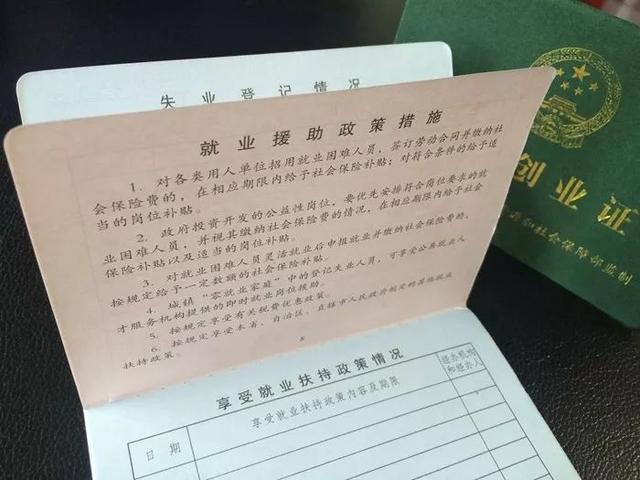 失业登记情况
就业援助政策措施
1. 对各类用人单位招用就业困难人员，签订劳动合同并缴纳社
会保险费的，在相应期限内给予社会保险补贴；对符合条件的给予适
当的岗位补贴。
2. 政府投资开发的公益性岗位，要优先安排符合岗位要求的就
业困难人员，并视其缴纳社会保险费的情况，在相应期限内给予社会
保险补贴以及适当的岗位补贴。
3. 对就业困难人员灵活就业后申报就业并缴纳社会保险费的，
按规定给予一定数额的社会保险补贴。
4. 城镇“零就业家庭”中的登记失业人员，可享受公共就业人
才服务机构提供的即时就业岗位援助。
5. 按规定享受有关税费优惠政策。
6. 按规定享受本省、自治区、直辖市人民政府制定的其他就业
扶持政策。
享受就业扶持政策情况
日期
享受就业扶持政策内容及期限
经办机构
和经办人
创业证
和社会保障部监制